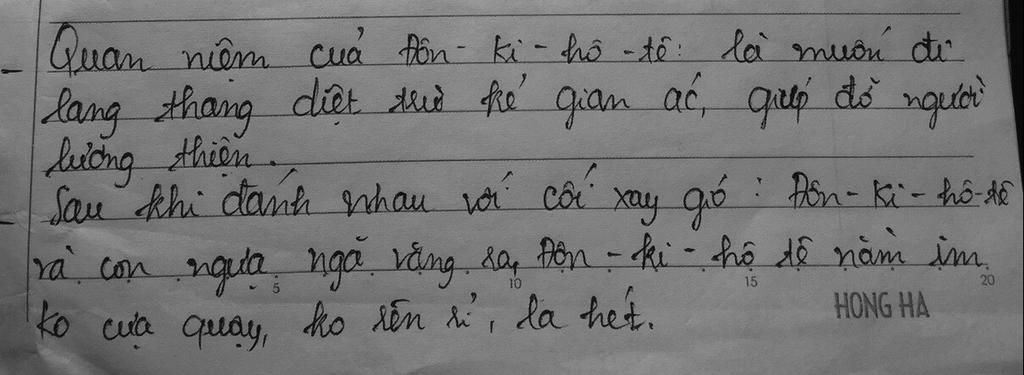 - Quan niệm cuả Đôn - ki - hô - tê: là muốn đi
lang thang diệt trừ kẻ gian ác, giúp đỡ người
lương thiện.
- Sau khi đánh nhau với cối xay gió : Đôn - ki - hô - tê
và con ngựa ngã văng ra, Đôn - ki - hô tê nằm im
ko cựa quạy, ko rên rỉ, la hét.
5 10 15 20
HONG HA